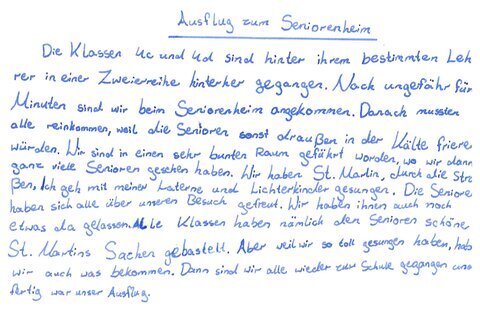 Ausflug zum Seniorenheim
Die Klassen 4c und 4d sind hinter ihrem bestimmten Leh
rer in einer Zweierreihe hinterher gegangen. Nach ungefähr für
Minuten sind wir beim Seniorenheim angekommen. Danach mussten
alle reinkommen, weil die Senioren sonst draußen in der Kälte friere
würden. Wir sind in einen sehr bunten Raum geführt worden, wo wir dann
ganz viele Senioren gesehen haben. Wir haben St. Martin, durch die Stra
ßen, Ich geh mit meiner Laterne und Lichterkinder gesungen. Die Seniore
haben sich alle über unseren Besuch gefreut. Wir haben ihnen auch noch
etwas da gelassen. Alle Klassen haben nämlich den Senioren schöne
St. Martins Sachen gebastelt. Aber weil wir so toll gesungen haben, hab
wir auch was bekommen. Dann sind wir alle wieder zur Schule gegangen uns
fertig war unser Ausflug.